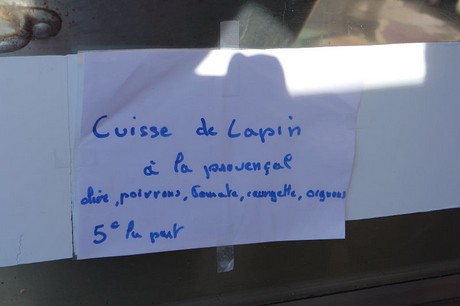 Cuisse de Lapin
à la provençal
olive, poivrons, Tomate, courgette, oignons
5€ la part